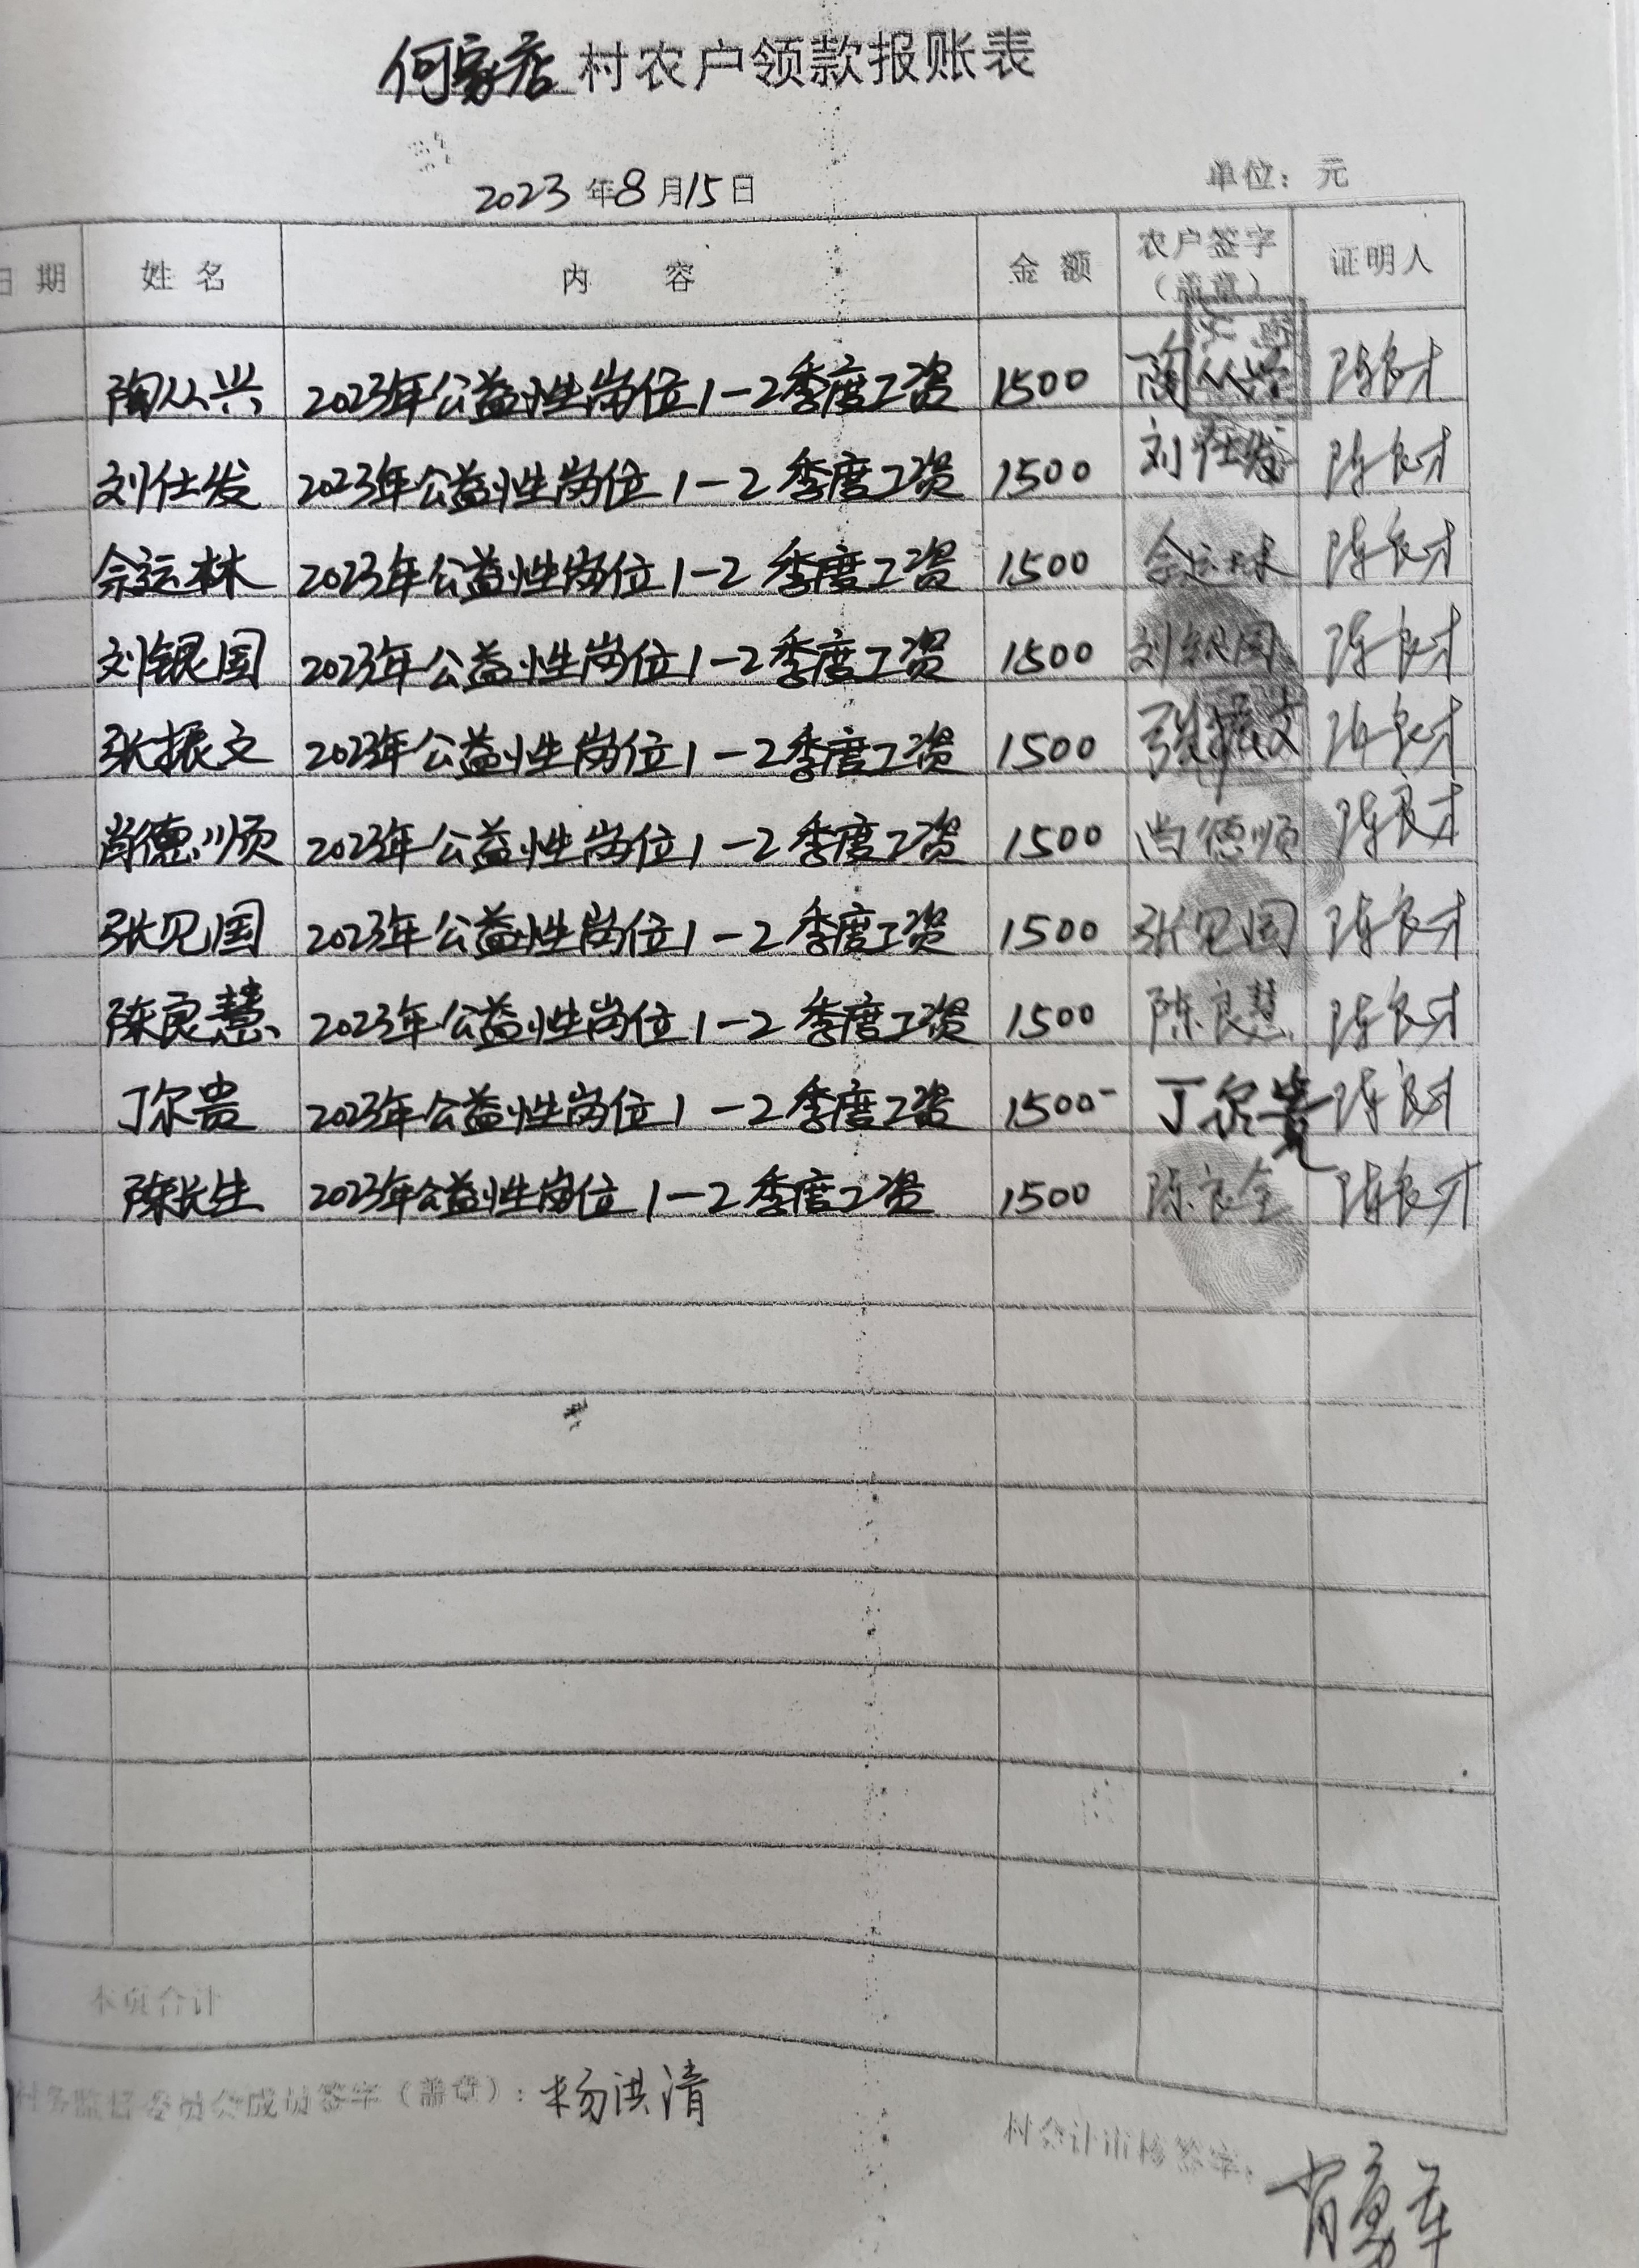 何家店村农户领款报账表
2023年8月15日 单位：元
日期 姓名 内容 金额 农户签字（盖章） 证明人
陶从兴 2023年公益性岗位1-2季度工资 1500 陶从兴 陈良才
刘仕发 2023年公益性岗位1-2季度工资 1500 刘仕发 陈良才
佘运林 2023年公益性岗位1-2季度工资 1500 佘运林 陈良才
刘银国 2023年公益性岗位1-2季度工资 1500 刘银国 陈良才
张振文 2023年公益性岗位1-2季度工资 1500 张振文 陈良才
尚德顺 2023年公益性岗位1-2季度工资 1500 尚德顺 陈良才
张见国 2023年公益性岗位1-2季度工资 1500 张见国 陈良才
陈良慧 2023年公益性岗位1-2季度工资 1500 陈良慧 陈良才
丁尔贵 2023年公益性岗位1-2季度工资 1500 丁尔贵 陈良才
陈长生 2023年公益性岗位1-2季度工资 1500 陈良全 陈良才
本页合计
村务监督委员会成员签字（盖章）：杨洪清
村会计审核签字：